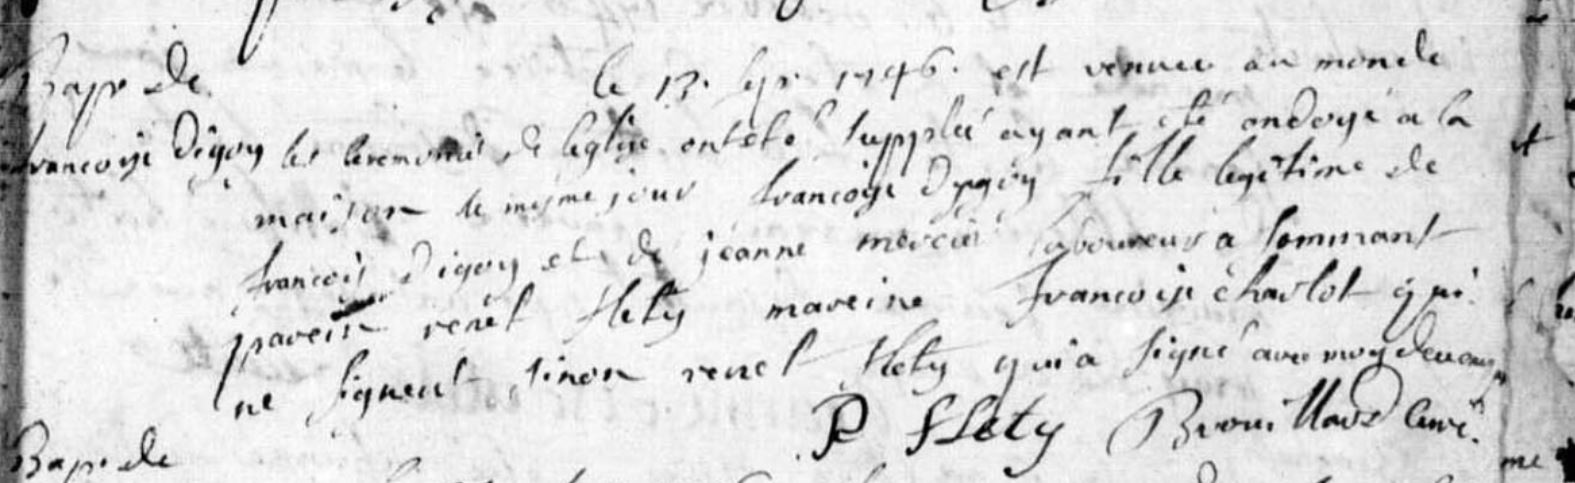 Bap. de le 13. 1746. est venue au monde
francoise Digoy les ceremonies de leglise ont été supplée ayant été ondoyé a la
maison le mesme jour francoise Dygoy fille legitime de
francois Digoy et de jeanne mercier laboureur a sommant
parein renet flety mareine francoise charlot qui
ne signent sinon renet flety qui a signé avec moy
R flety Brouillard curé.
Bap. de